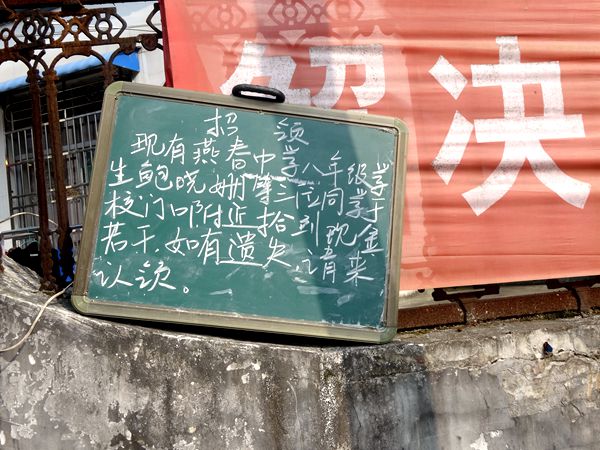 招领
现有燕春中学八年级学
生鲍晓姗等三位同学于
校门口附近拾到现金
若干，如有遗失，请来
认领。
决